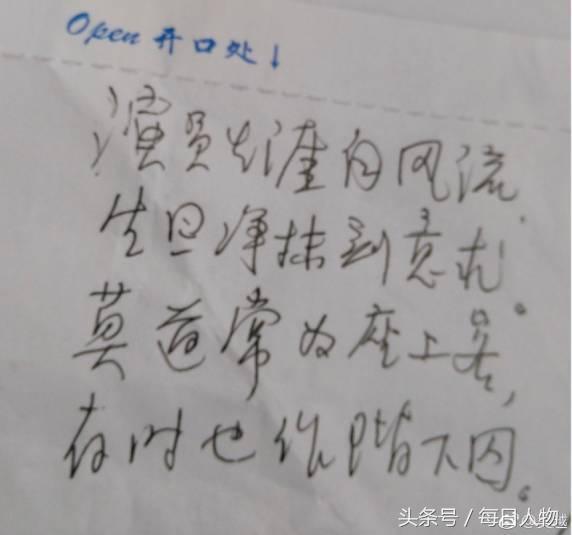 Open 开口处↓
演员生涯自风流,
生旦净抹到意札。
莫道常为座上客,
有时也作阶下囚。
头条号／每日人物